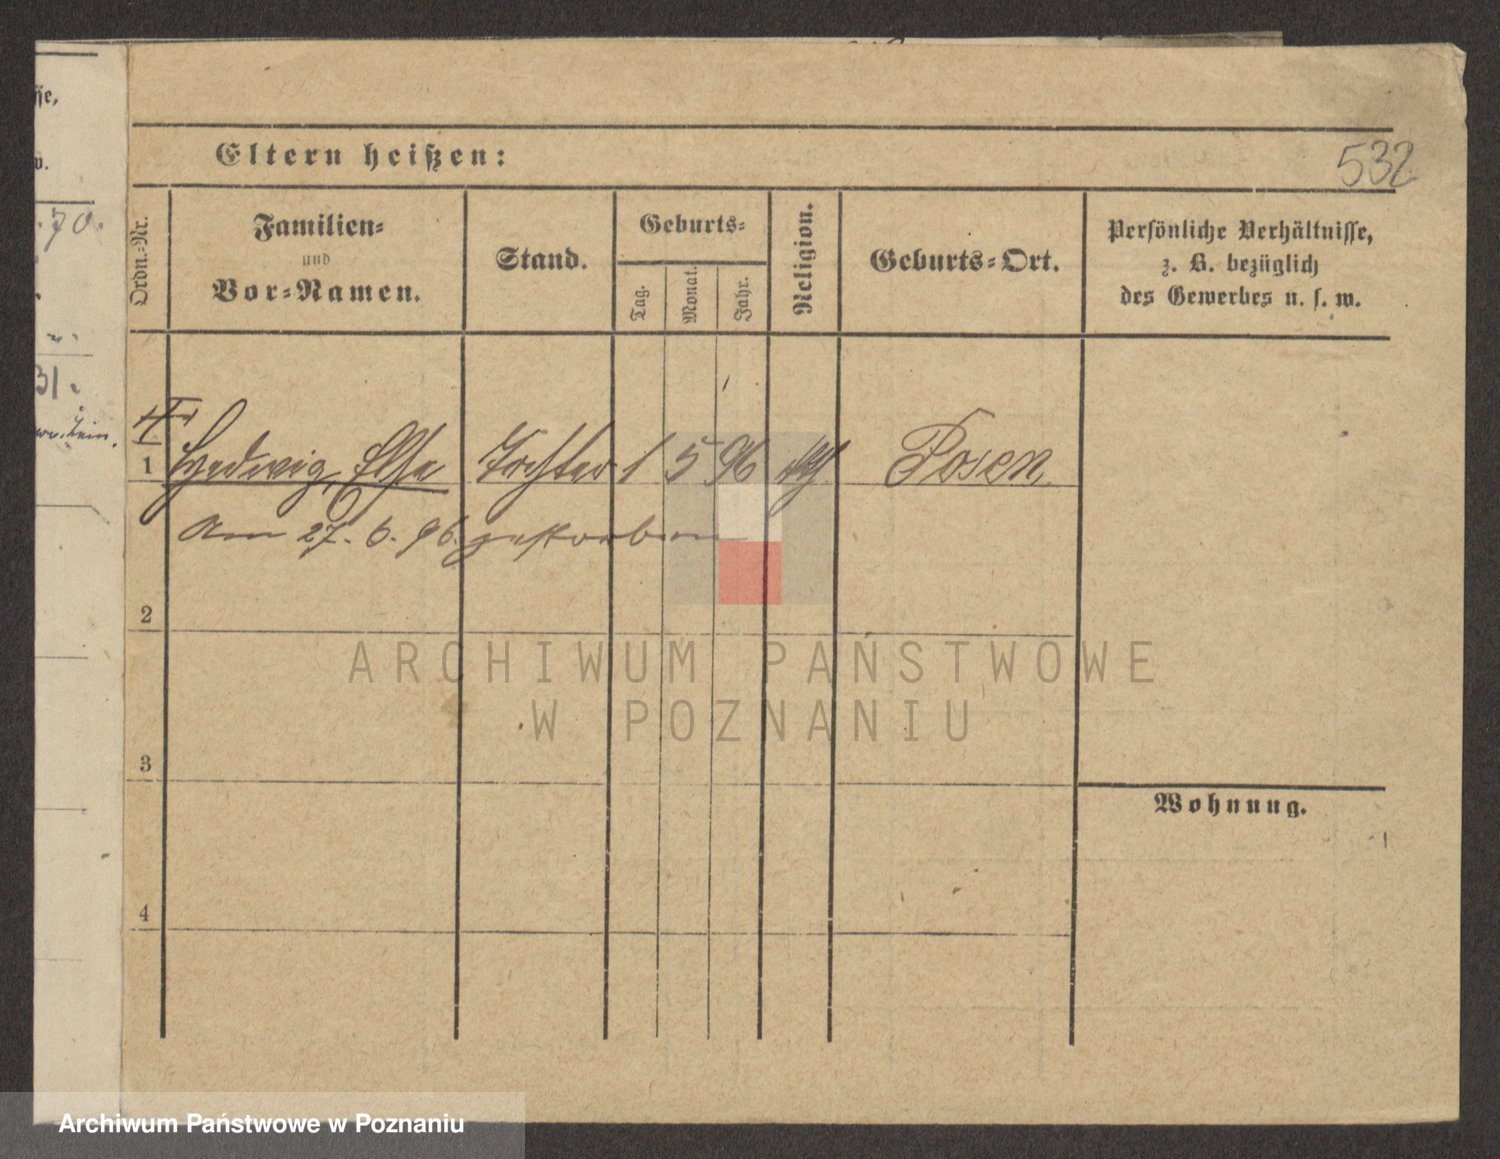 sse,
w.
70.
31.
532
Eltern heißen:
Ordn.-Nr.
Familien-
und
Vor-Namen.
Stand.
Geburts-
Tag.
Monat.
Jahr.
Religion.
Geburts-Ort.
Persönliche Verhältnisse,
z. B. bezüglich
des Gewerbes u. s. w.
1 Hedwig, Else Tochter 1 5 96 Posen
Am 27. 6. 96. gestorben
2
3
4
Wohnung.
ARCHIWUM PAŃSTWOWE
W POZNANIU
Archiwum Państwowe w Poznaniu